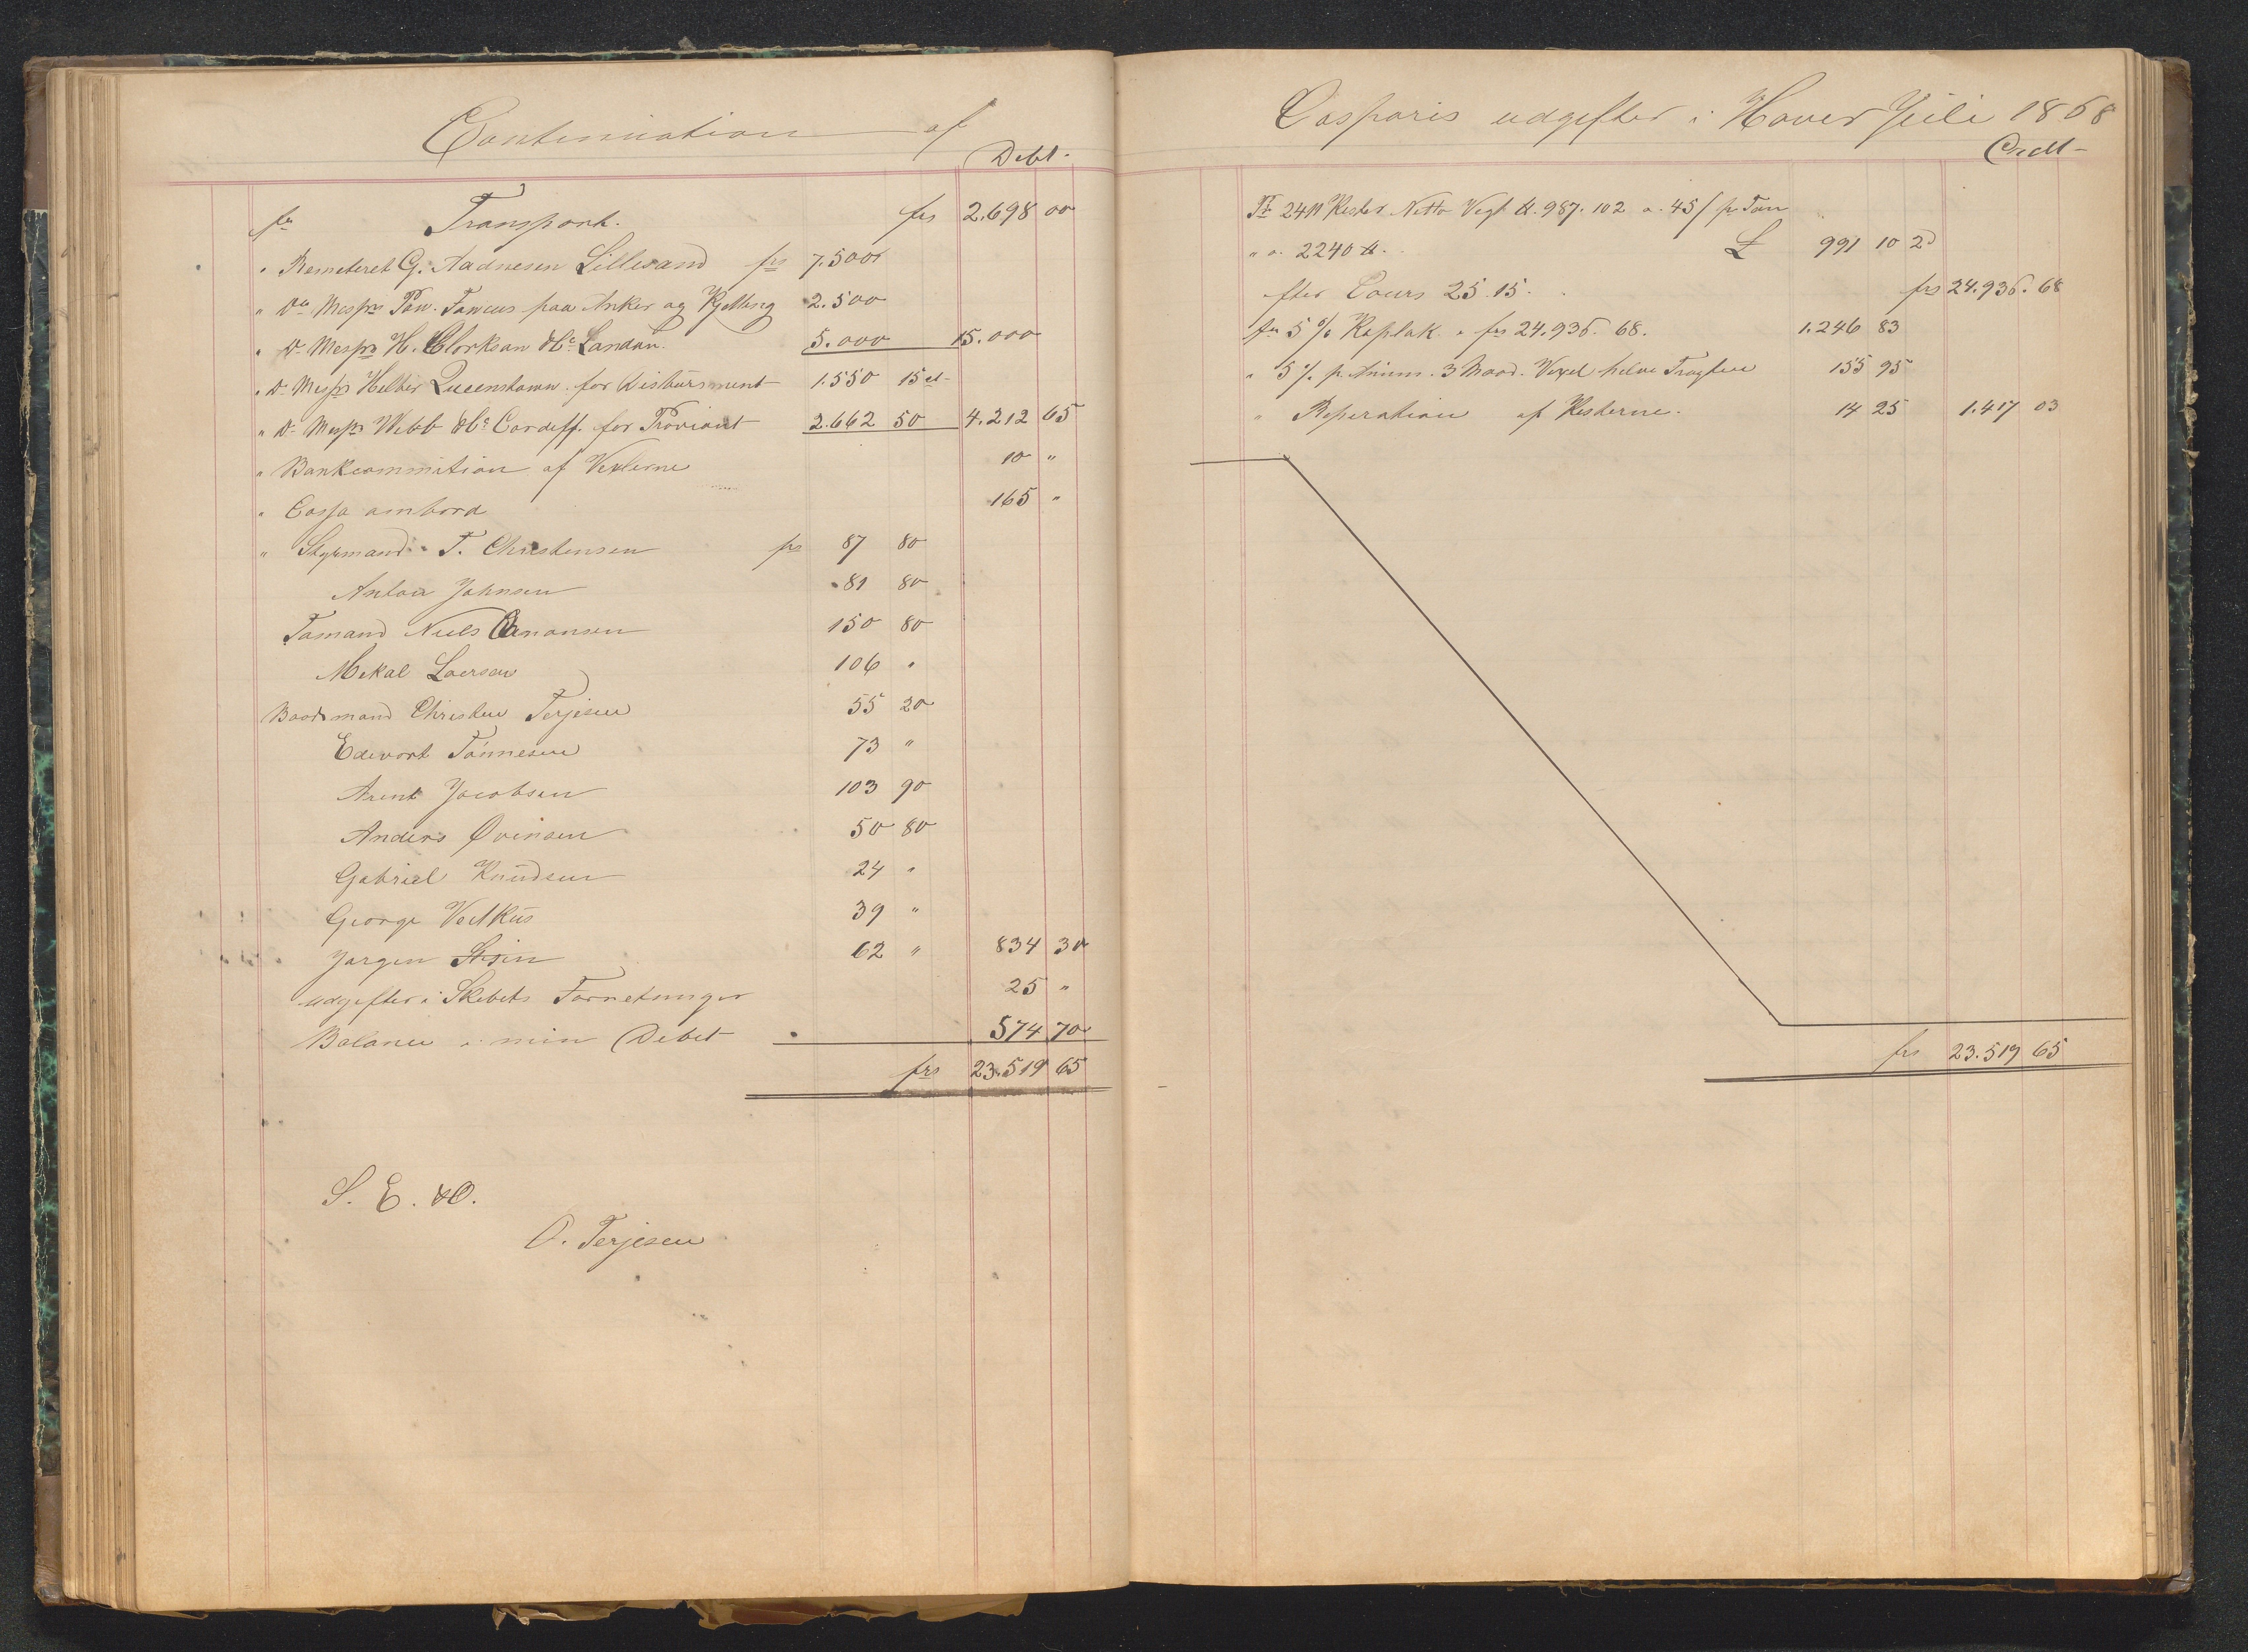 Continuation af
Debt.
fr Transport. frs 2.698 00
" Remeteret G. Aadnesen Lillesand frs 7.500
" Do Messrs Pow. Fawcus paa Anker og Kjetting 2.500
" Do Messrs H. Clarkson & Co London. 5.000 15.000
" Do Messrs Queenstown for Disbursment 1.550 15 ct
" Do Messrs Webb & Co Cardiff. for Proviant 2.662 50 4.212 65
" Bankcommition af Vexlerne 10 "
" Cassa ombord 165 "
" Styrmand T. Christensen frs 87 80
Anton Johnsen 81 80
Tømand Niels 150 80
Mekal Laersen 106 "
Baadsmand Christen Terjesen 55 20
Edevort Tønnesen 73 "
Arent Jacobsen 103 90
Anders Øvensen 50 80
Gabriel Knudsen 24 "
George 39 "
Jørgen 62 " 834 30
udgifter i Skibets Forretninger 25 "
Balance i min Debet 574 70
frs 23.519 65
S. E. & O.
O. Terjesen
Casparis udgifter i Haver Juli 1868
Credt
Pr 2411 Kester Netto Vegt ℔. 987.102 a. 45/ pr Ton
" a. 2240 ℔. £ 991 10 2d
efter Cours 25.15. frs 24.936.68
fr 5 % Kaplak a frs 24.936.68. 1.246 83
" 5 % pr Annum. 3 Maad. Vexel halve Fragten 155 95
" Reperation af Kesterne. 14 25 1.417 03
frs 23.519 65